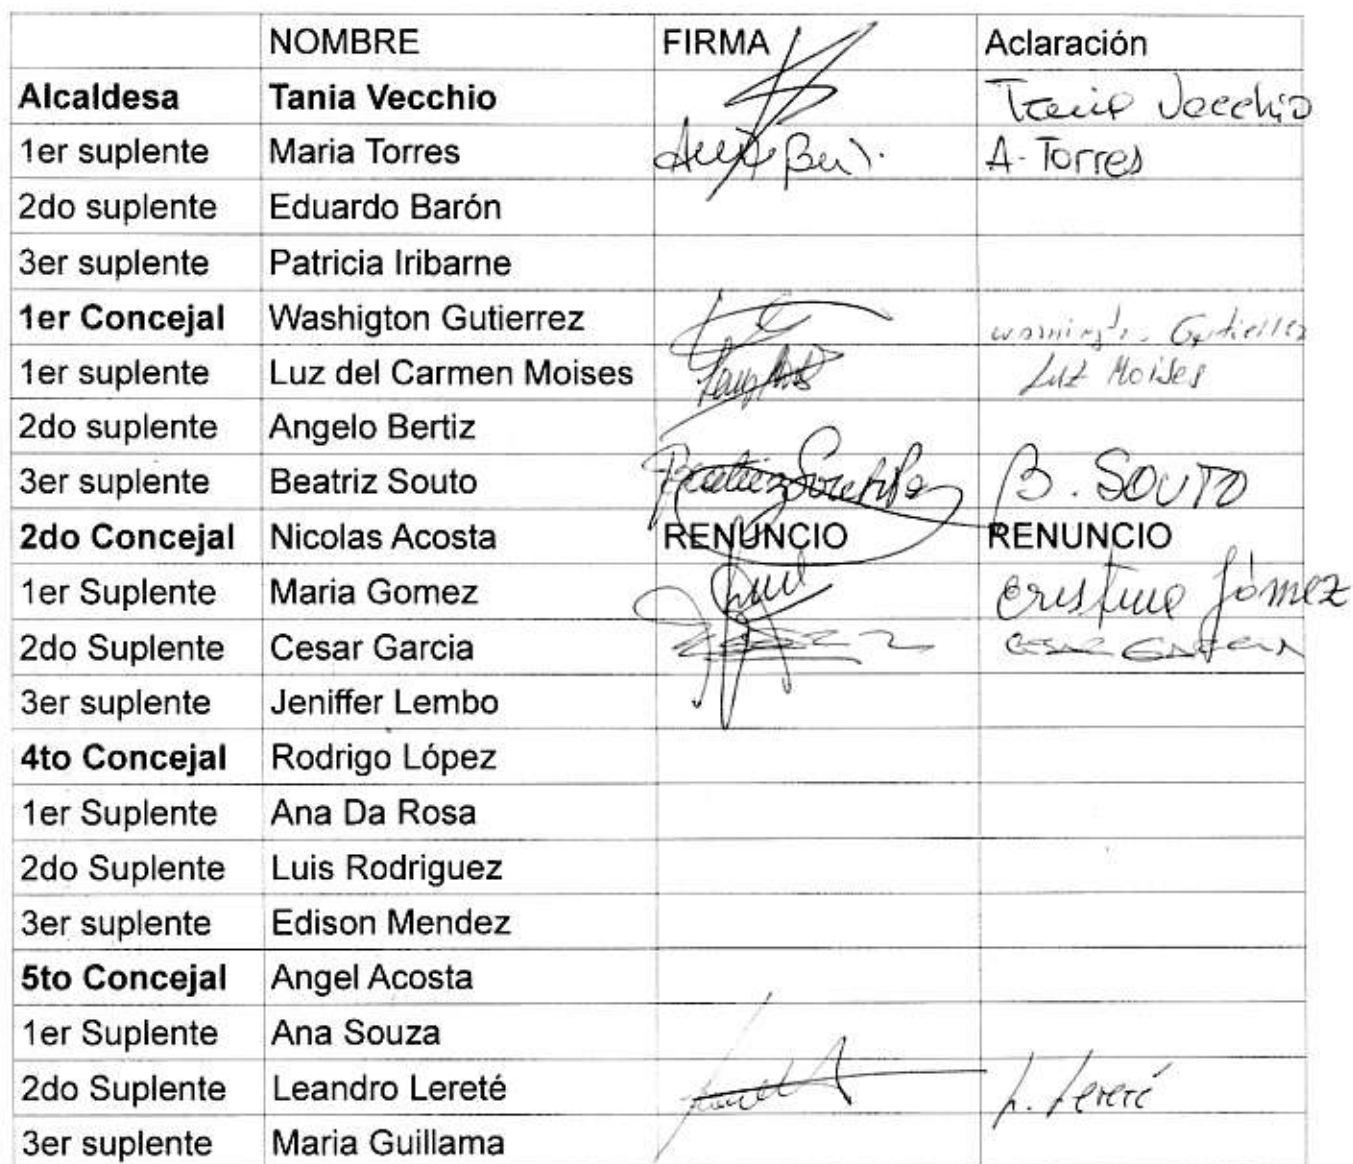 NOMBRE FIRMA Aclaración
Alcaldesa Tania Vecchio Tania Vecchio
1er suplente Maria Torres A. Torres
2do suplente Eduardo Barón
3er suplente Patricia Iribarne
1er Concejal Washigton Gutierrez Gutierrez
1er suplente Luz del Carmen Moises Luz Moises
2do suplente Angelo Bertiz
3er suplente Beatriz Souto B. SOUTO
2do Concejal Nicolas Acosta RENUNCIO RENUNCIO
1er Suplente Maria Gomez Cristina Gómez
2do Suplente Cesar Garcia CESAR GARCIA
3er suplente Jeniffer Lembo
4to Concejal Rodrigo López
1er Suplente Ana Da Rosa
2do Suplente Luis Rodriguez
3er suplente Edison Mendez
5to Concejal Angel Acosta
1er Suplente Ana Souza
2do Suplente Leandro Lereté L. Lereté
3er suplente Maria Guillama